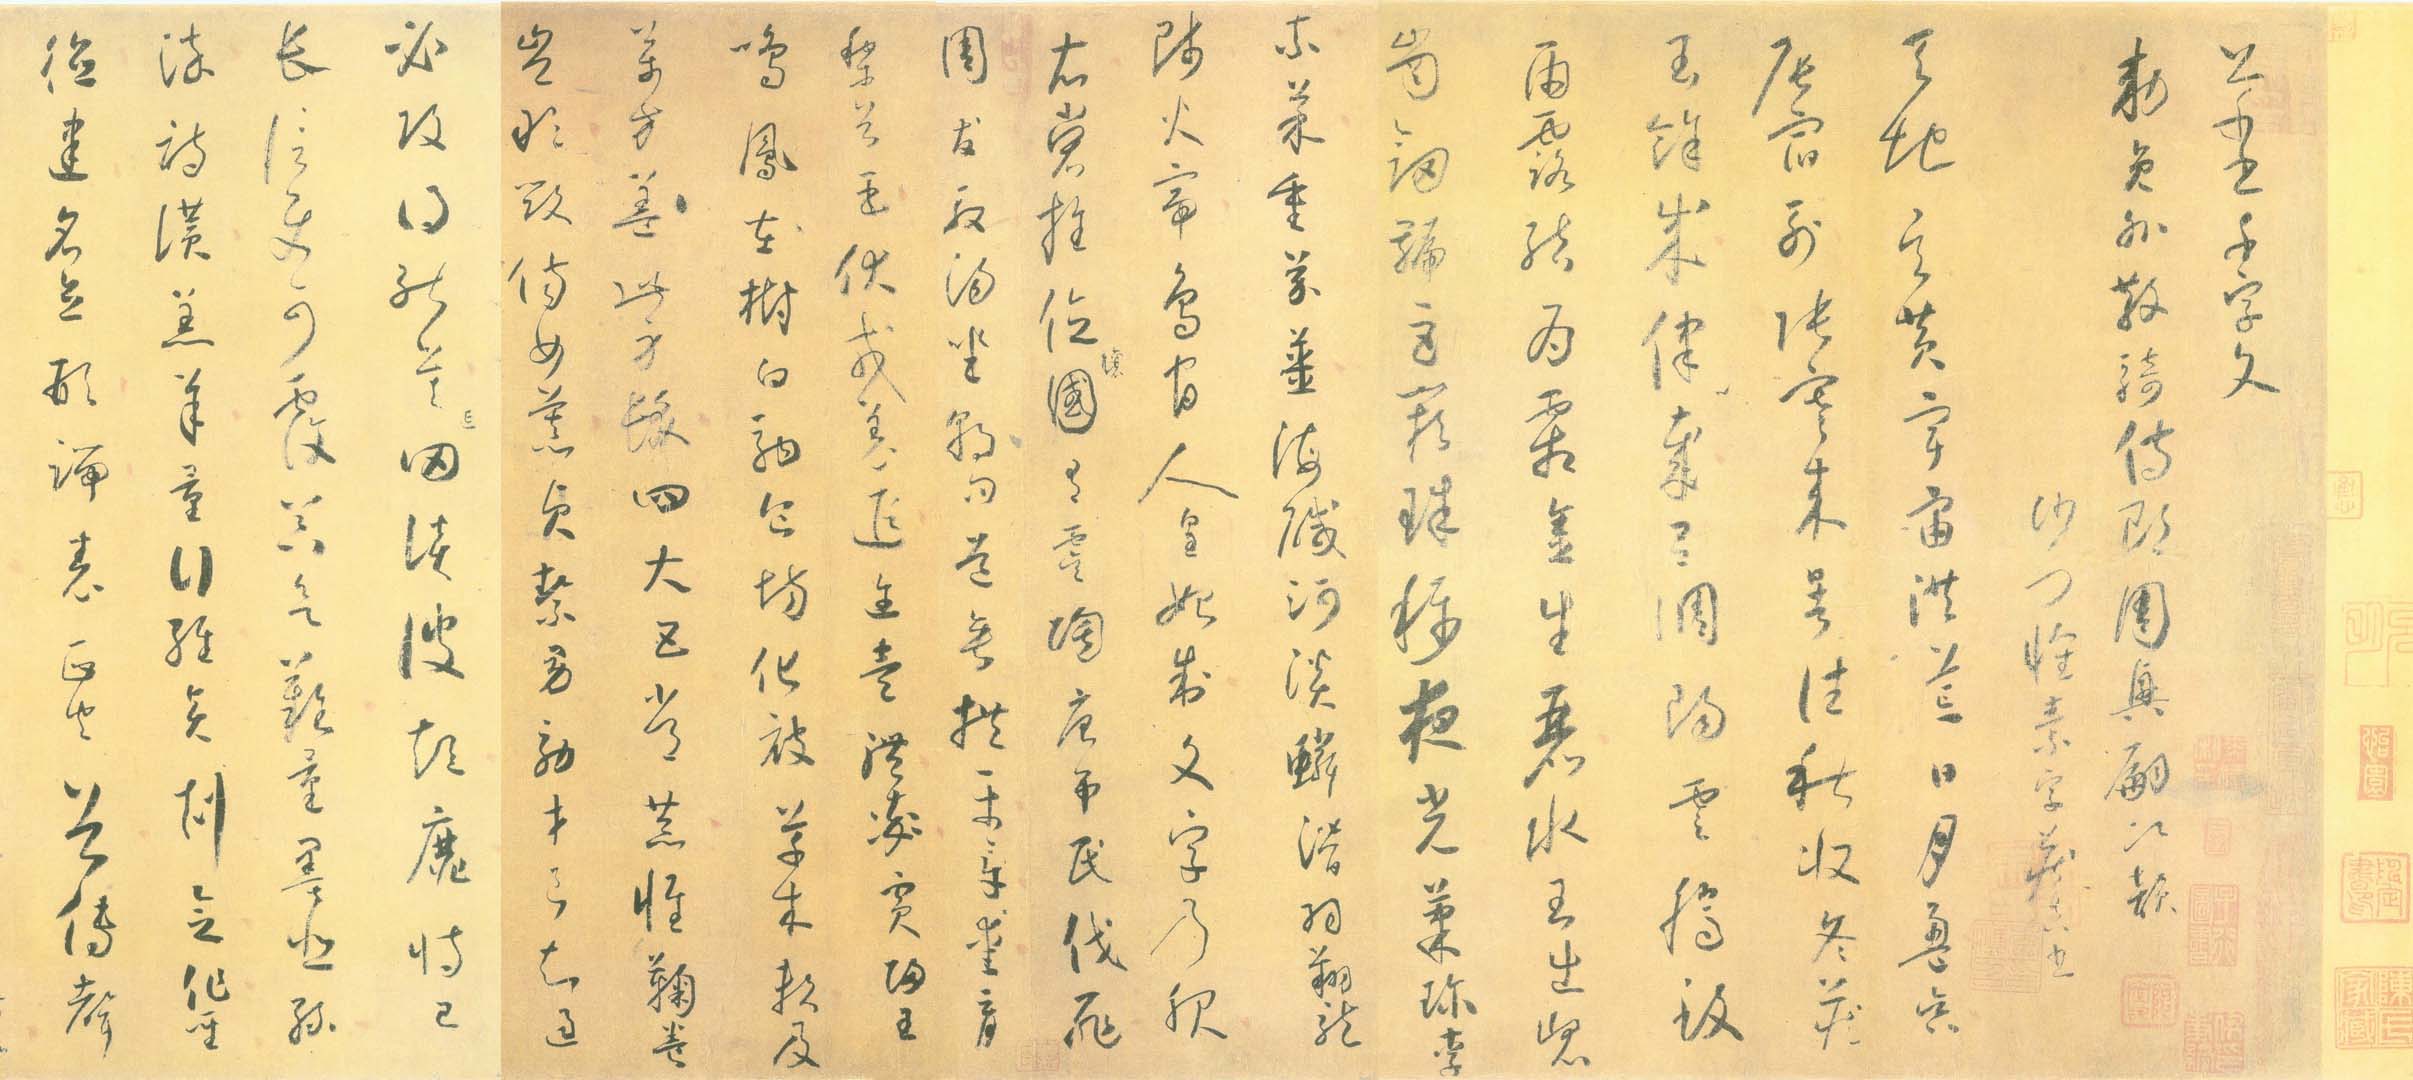 千字文
勅員外散騎侍郎周興嗣次韻
沙門懷素字藏真書
天地玄黃宇宙洪荒日月盈昃
辰宿列張寒來暑往秋收冬藏
閏餘成律歲呂調陽雲騰致
雨露結為霜金生麗水玉出崑
崗劍號巨闕珠稱夜光菓珍李
柰菜重芥薑海鹹河淡鱗潛羽翔龍
師火帝鳥官人皇始制文字乃服
衣裳推位讓國有虞陶唐弔民伐罪
周發殷湯坐朝問道垂拱平章愛育
黎首臣伏戎羌遐邇壹體率賓歸王
鳴鳳在樹白駒食場化被草木賴及
萬方蓋此身髮四大五常恭惟鞠養
豈敢毀傷女慕貞絜男效才良知過
必改得能莫忘罔談彼短靡恃己
長信使可覆器欲難量墨悲絲
染詩讚羔羊景行維賢剋念作聖
德建名立形端表正空谷傳聲